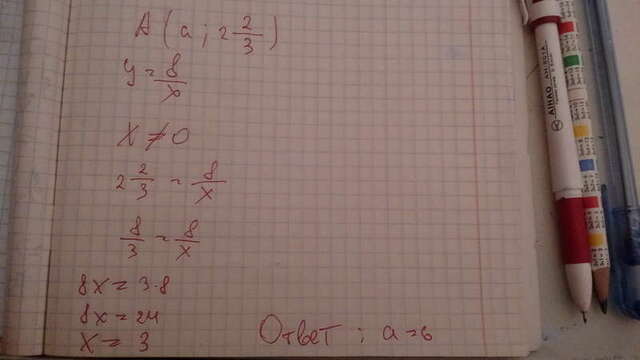 A (a ; 2 2/3)
y = 8/x
x ≠ 0
2 2/3 = 8/x
8/3 = 8/x
8x = 3·8
8x = 24
x = 3
Ответ ; a = 6
AIHAO